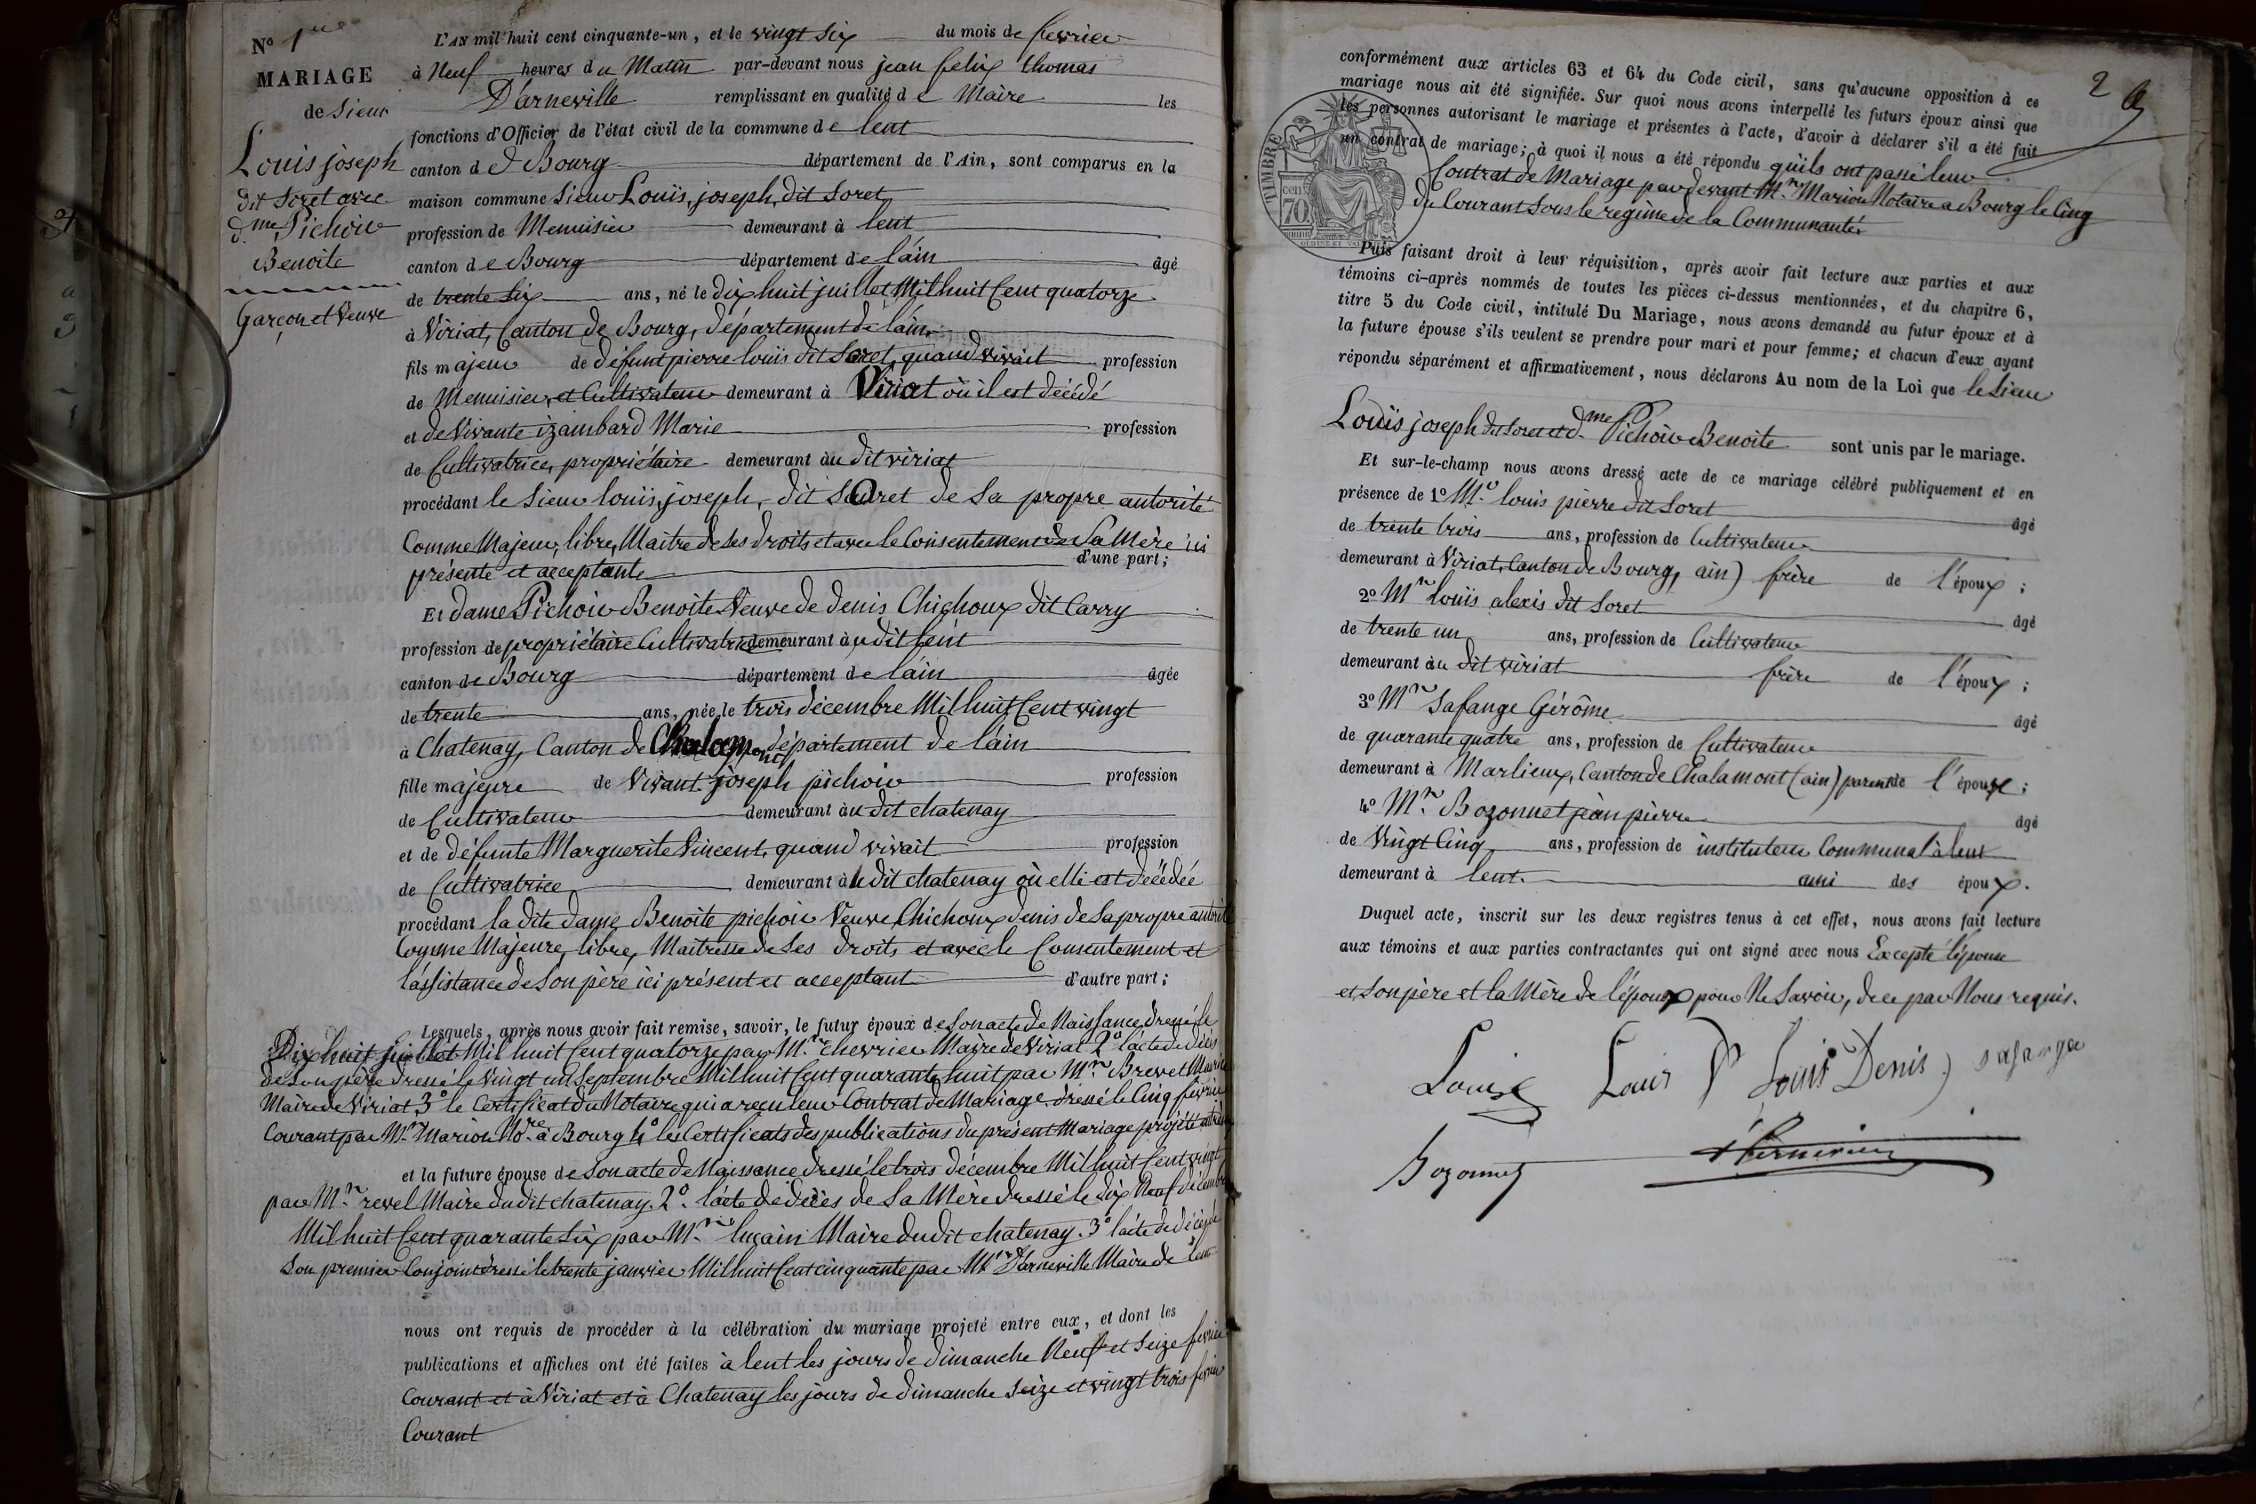 N° 1er
MARIAGE
de Sieur
Louis joseph
dit Soret avec
d.me Pichoir
Benoite
Garçon et Veuve
L'AN mil huit cent cinquante-un, et le vingt six du mois de fevrier
à Neuf heures du Matin par-devant nous jean felix thomas
D'arneville remplissant en qualité de Maire les
fonctions d'Officier de l'état civil de la commune de lent
canton de Bourg département de l'Ain, sont comparus en la
maison commune Sieur Louis, joseph, dit Soret
profession de Menuisier demeurant à lent
canton de Bourg département de l'áin âgé
de trente six ans, né le dix huit juillet Mil huit Cent quatorze
à Viriat, Canton de Bourg, département de láin,
fils majeur de défunt pierre louis dit Soret, quand vivait profession
de Menuisier et Cultivateur demeurant à Viriat où il est décédé
et de Vivante izambard Marie profession
de Cultivatrice, propriétaire demeurant àu dit viriat
procédant le Sieur louis, joseph, dit Soret de Sa propre autorité
Comme Majeur, libre, Maitre de Ses droits et avec le Consentement de Sa Mère ici
présente et acceptante d'une part;
Et dame Pichoir Benoite Veuve de denis Chichoux dit Carry
profession de propriétaire Cultivatrice demeurant àu dit lent
canton de Bourg département de láin âgée
de trente ans, née le trois décembre Mil huit Cent vingt
à Chatenay, Canton de Chalamont département de láin
fille majeure de Vivant joseph pichoir profession
de Cultivateur demeurant àu dit chatenay
et de défunte Marguerite Vincent, quand vivait profession
de Cultivatrice demeurant àu dit chatenay où elle est décédée
procédant la dite dame Benoite pichoir Veuve Chichoux denis de Sa propre autorité
Comme Majeure, libre, Maitresse de Ses droits et avec le Consentement et
l'assistance de Son père ici présent et acceptant d'autre part;
Lesquels, après nous avoir fait remise, savoir, le futur époux de Son acte de Naissance dressé le
Dix huit juillet Mil huit Cent quatorze par M.r Chevrier Maire de Viriat 2° l'acte de décès
de Son père dressé le Vingt un Septembre Mil huit Cent quarante huit par M.r Brevet Marie
Maire de Viriat 3° le Certificat du Notaire qui a reçu leur Contrat de Mariage dressé le Cinq fevrier
Courant par M.r Marion No.re à Bourg 4° les Certificats des publications du présent Mariage projété
et la future épouse de Son acte de Naissance dressé le trois décembre Mil huit Cent vingt
par M.r revel Maire du dit chatenay. 2° l'acte de décès de Sa Mère dressé le dix Neuf décembre
Mil huit Cent quarante Six par M.r luçain Maire du dit chatenay. 3° l'acte de décès de
Son premier Conjoint dressé le trente janvier Mil huit Cent cinquante par M.r D'arneville Maire de lent
nous ont requis de procéder à la célébration du mariage projeté entre eux, et dont les
publications et affiches ont été faites à lent les jours de dimanche Neuf et Seize fevrier
Courant et à Viriat et à Chatenay les jours de dimanche Seize et vingt trois fevrier
Courant
2
conformément aux articles 63 et 64 du Code civil, sans qu'aucune opposition à ce
mariage nous ait été signifiée. Sur quoi nous avons interpellé les futurs époux ainsi que
les personnes autorisant le mariage et présentes à l'acte, d'avoir à déclarer s'il a été fait
un contrat de mariage; à quoi il nous a été répondu qu'ils ont passé leur
Contrat de Mariage par devant M.r Marion Notaire a Bourg le Cinq
du Courant Sous le regime de la Communauté.
TIMBRE
70
Puis faisant droit à leur réquisition, après avoir fait lecture aux parties et aux
témoins ci-après nommés de toutes les pièces ci-dessus mentionnées, et du chapitre 6,
titre 5 du Code civil, intitulé Du Mariage, nous avons demandé au futur époux et à
la future épouse s'ils veulent se prendre pour mari et pour femme; et chacun d'eux ayant
répondu séparément et affirmativement, nous déclarons Au nom de la Loi que le Sieur
Louis joseph dit Soret et d.me Pichoir Benoite sont unis par le mariage.
Et sur-le-champ nous avons dressé acte de ce mariage célébré publiquement et en
présence de 1° M.r louis pierre dit Soret âgé
de trente trois ans, profession de Cultivateur
demeurant à Viriat, Canton de Bourg, ain) frère de l'époux;
2° M.r louis alexis dit Soret âgé
de trente un ans, profession de Cultivateur
demeurant àu dit viriat frère de l'époux;
3° M.r Safange Gérôme âgé
de quarante quatre ans, profession de Cultivateur
demeurant à Marlieux, Canton de Chalamont (ain) parent de l'épouse;
4° M.r Bozonnet jean pierre âgé
de Vingt Cinq ans, profession de instituteur Communal à lent
demeurant à lent. ami des époux.
Duquel acte, inscrit sur les deux registres tenus à cet effet, nous avons fait lecture
aux témoins et aux parties contractantes qui ont signé avec nous Excepté l'épouse
et Son père et la Mère de l'époux pour Ne Savoir, de ce par Nous requis.
Louis Louis P Louis Denis Safange
Bozonnet